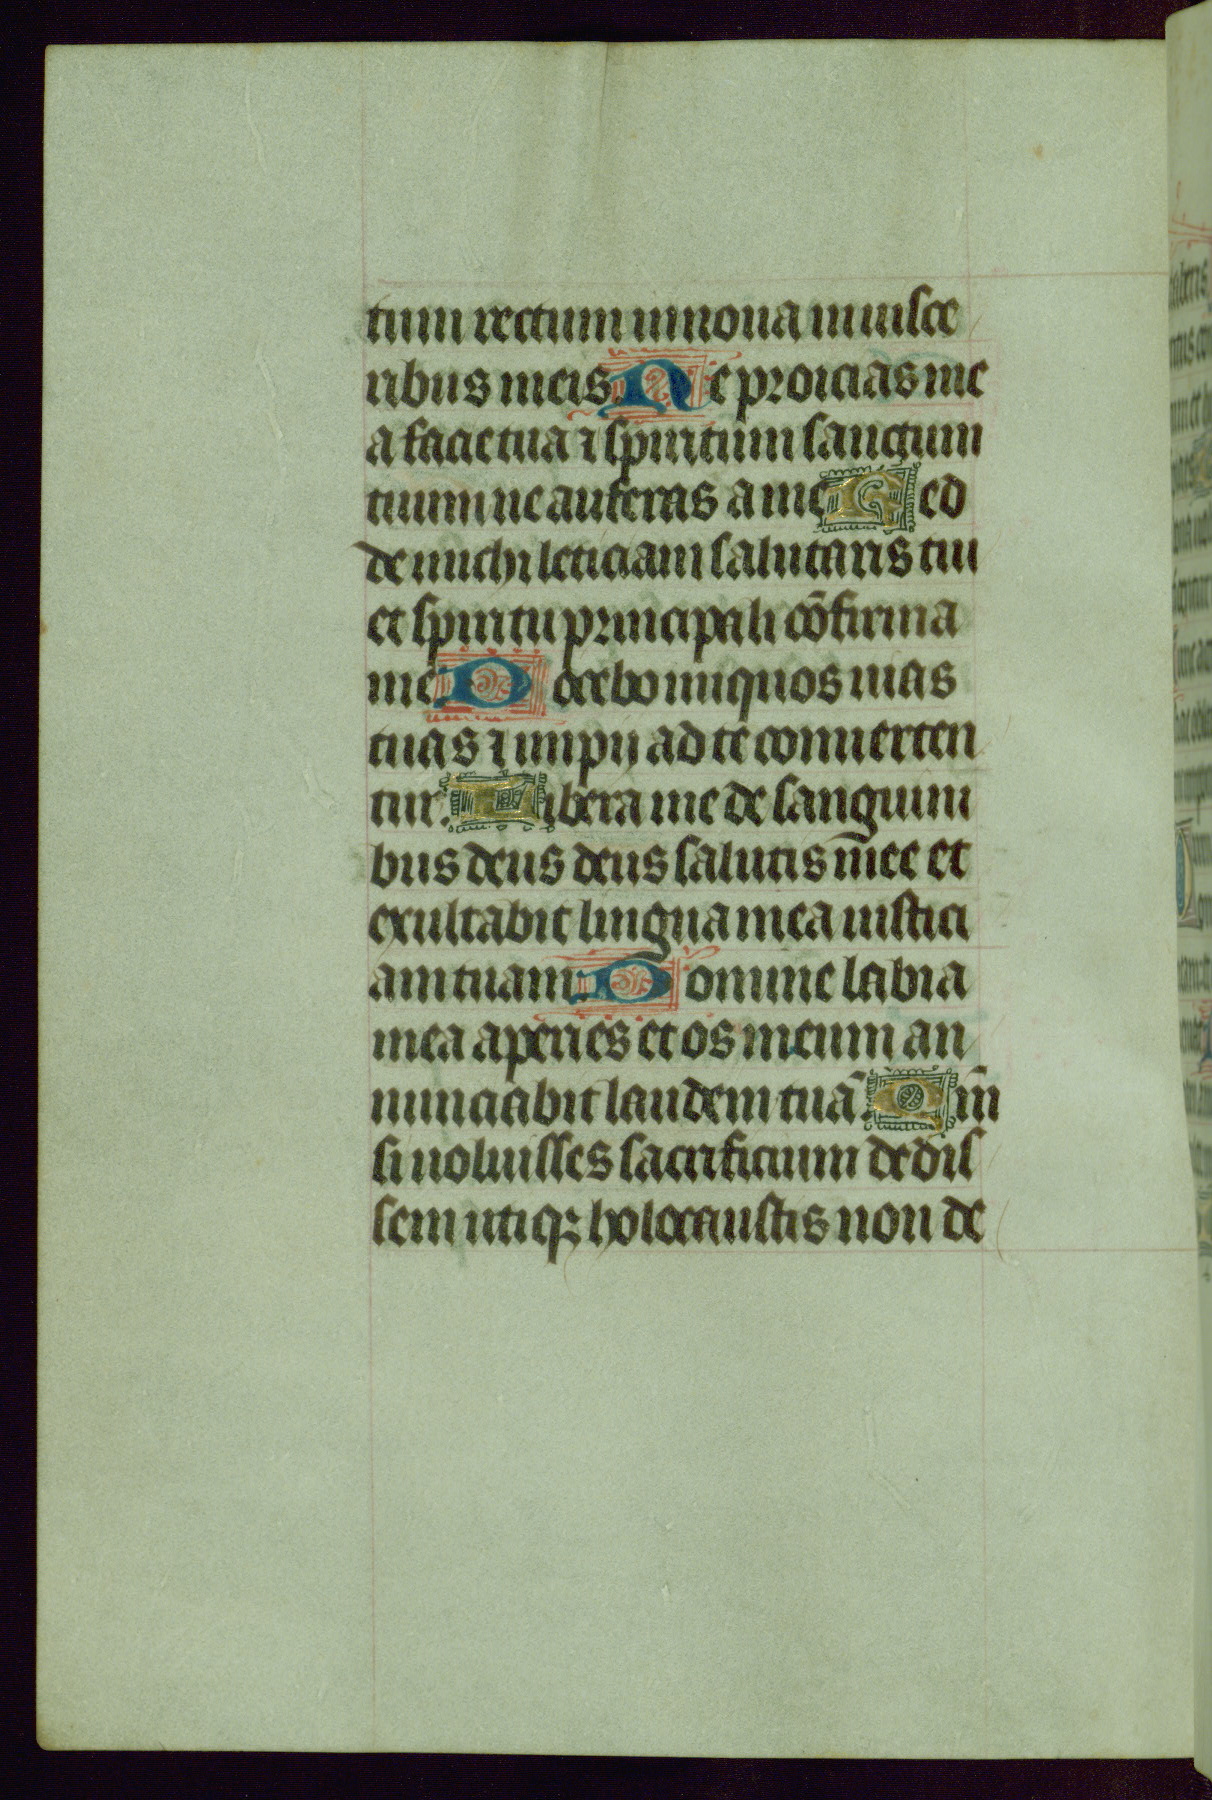 tum rectum innoua in uisce
ribus meis. Ne proicias me
a facie tua ⁊ spiritum sanctum
tuum ne auferas a me Red
de michi leticiam salutaris tui
et spiritu principali cōfirma
me. Docebo iniquos uias
tuas ⁊ impii ad te conuerten
tur. Libera me de sanguini
bus deus deus salutis mee et
exultabit lingua mea iustici
am tuam. Domine labia
mea aperies et os meum an
nunciabit laudem tuā. Qm̄
si uoluisses sacrificium dedis
sem utiqꝫ holocaustis non de